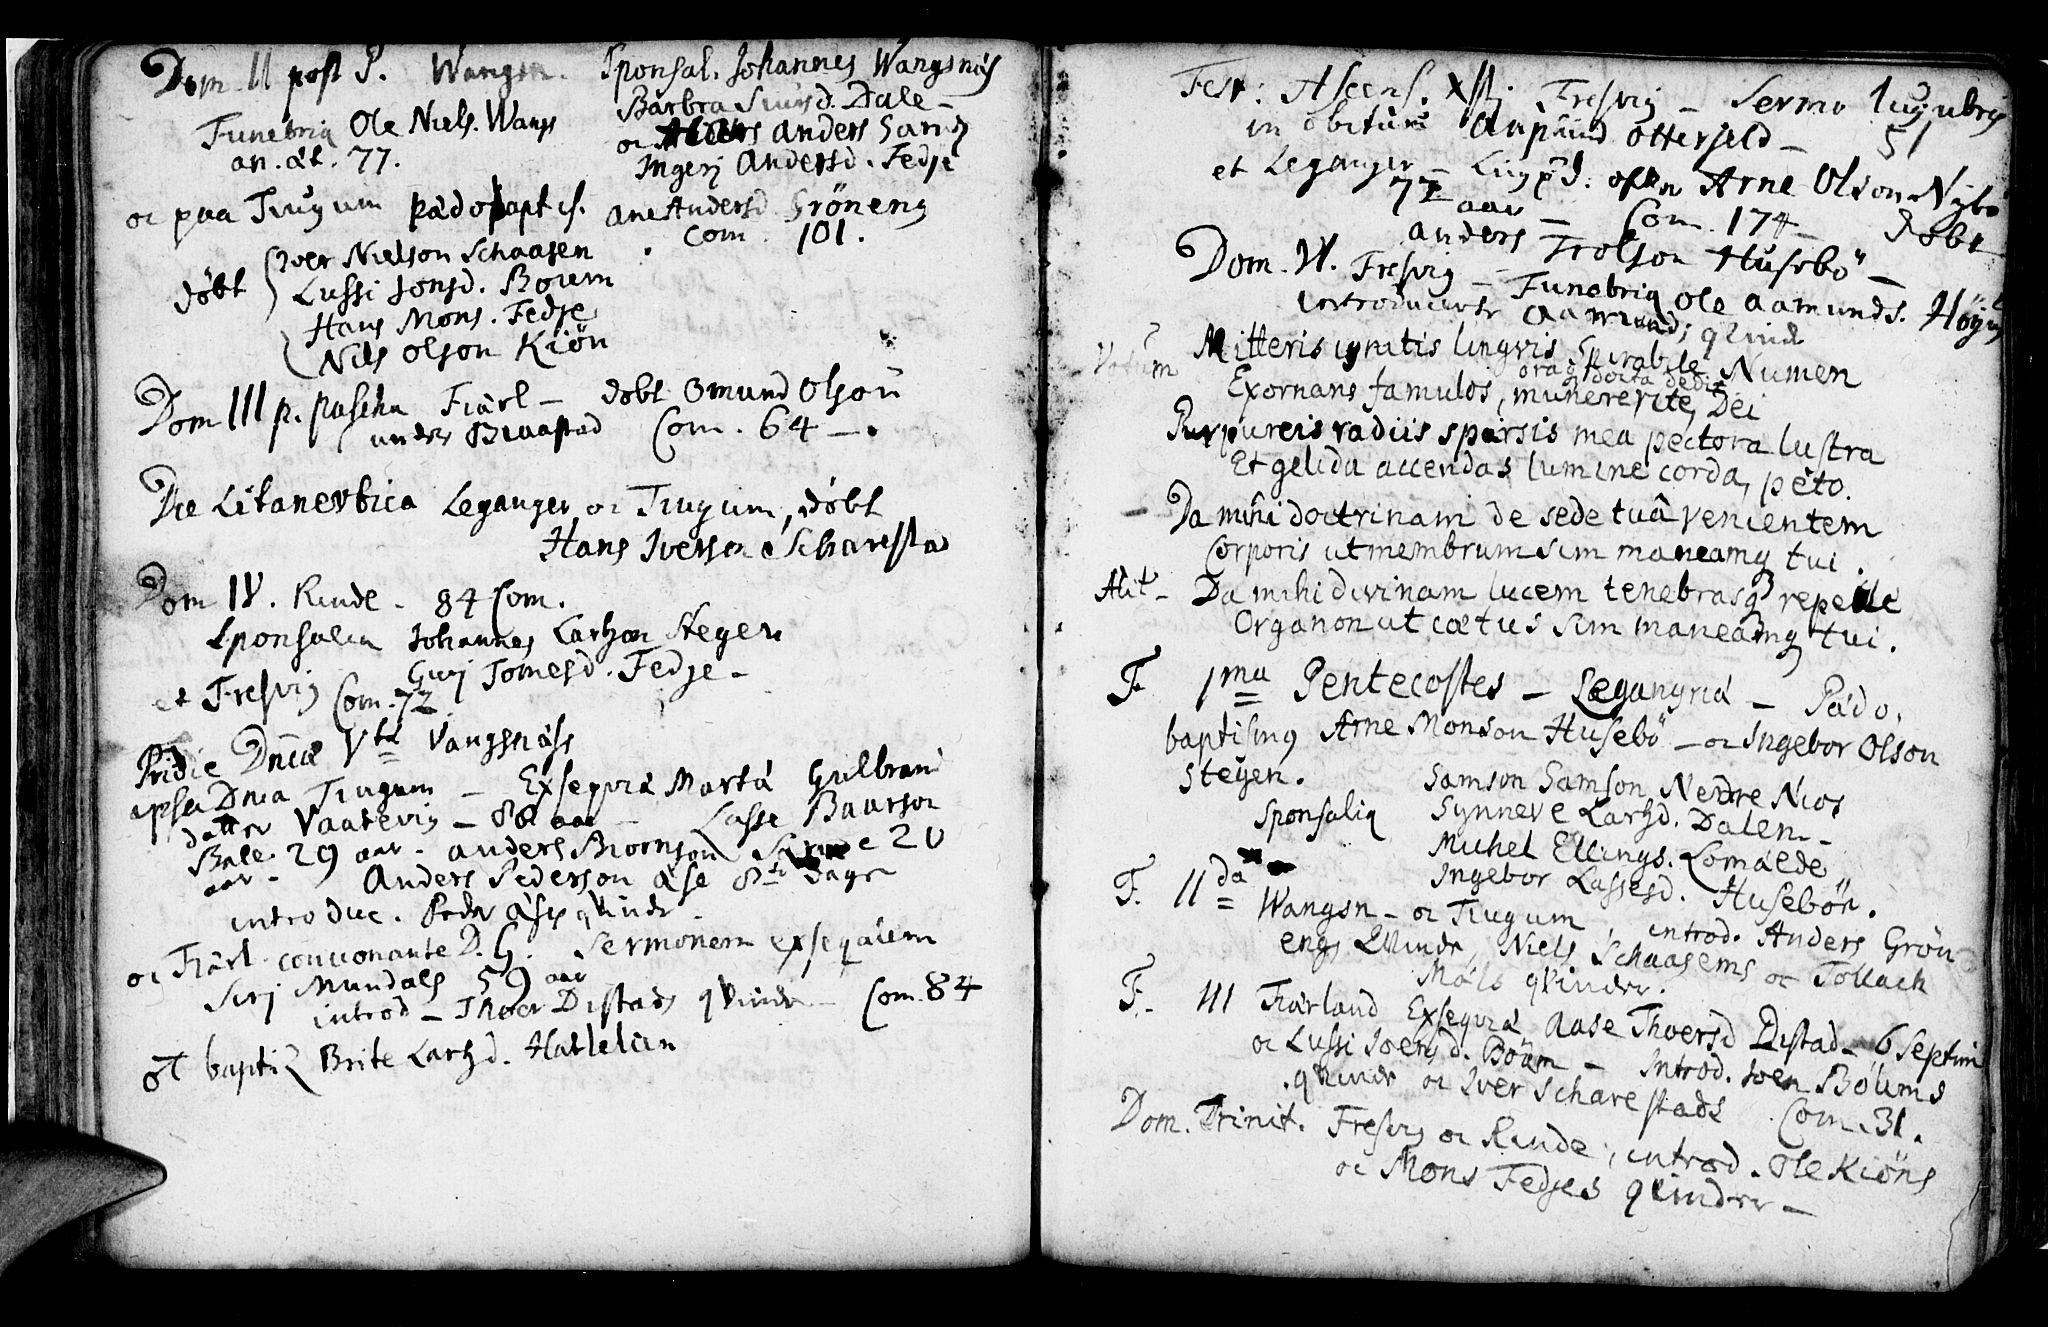 Dom II post P. Wangsn.
Funebria Ole Niels. Wangs
an. æt. 77.
oc paa Tiugum pædobaptis.
døbt Iver Nielson Schaasen
Lussi Jonsd. Bøum
Hans Mons. Fedje
Nils Olson Kiøn
Sponsal. Johannes Wangsnæs
Barbra Siursd. Dale -
oc Anders Gar
Ingerj Andersd. Fedje
Ane Andersd Grøneng
Com. 101.
Dom III p. pascha Fiærl - døbt Omund Olson
under Com. 64 -.
Die Litanevtica Leganger oc Tiugum, døbt
Hans Iverson Scharestad
Dom IV. Rinde - 84 Com.
Sponsalia Johannes Larhson Stegen
Gurj Tomesd. Fedje -
et Fresvig Com. 72
Pridie Dnicæ Vtæ Vangsnæss
ipsa Dnica Tiugum - Exseqviæ Martæ Gulbrand
datter Vaatevig - 88 aar - Lasse Baarson
Bale. 29 aar - Anders Biørnson 20
aar - Anders Pederson Ase 8te dage
introduc. Peder Ases qvinde -
oc Fiærl. concionante D. G. Sermonem exseqvium
Sirj Mundals 59 aar
introd - Thoer Distads qvinde - Com. 84
baptiz Brite Larhsd. Hatlelien
Fest: Ascens. Xsti Fresvig - Sermo lugubris
in obitum Otterseld - 51
et Leganger - Arne Olson Nybø
77 aar - Com. 174 - Døbt
anders Trolson Husebø -
Dom. VI. Fresvig - Funebria Ole Aamunds. Høyu
introducerte Aamunds qvinde
Votum Mitteris ignitis lingvis spirabile Numen
oraq docta dedit
Exornans famulos, munere rite, Dei
Purpureis radiis sparsis mea pectora lustra
Et gelida accendas lumine corda, peto.
- Da mihi doctrinam de sede tuâ venientem
Corporis ut membrum sim maneamq tui.
Alit - Da mihi divinam lucem tenebrasq repelle
Organon ut cætus sim maneamq tui.
F. 1ma Pentecostes - Legangriæ - Pædo,
baptismq Arne Monson Husebø - oc Ingebor Olson
Steyen.
Sponsalia Samson Samson Nedre Nios
Synneve Larhsd. Dalen -
Michel Ellings. Lomælde
Ingebor Lassesd. Husebøn.
F. IIda Wangsn - oc Tiugum, introd. Anders Grøn
engs Qvinde, Niels Schaasens oc Tollach
Mæls qvinder.
F. III Fiærland Exseqviæ Aase Thoersd Distad - 6 Septim
oc Lussi Joensd. Bøum - Introd. Joen Bøums
qvinde oc Iver Scharestads Com. 31.
Dom. Trinit. Fresvig oc Rinde, introd. Ole Kiøns
oc Mons Fedjes qvinder -